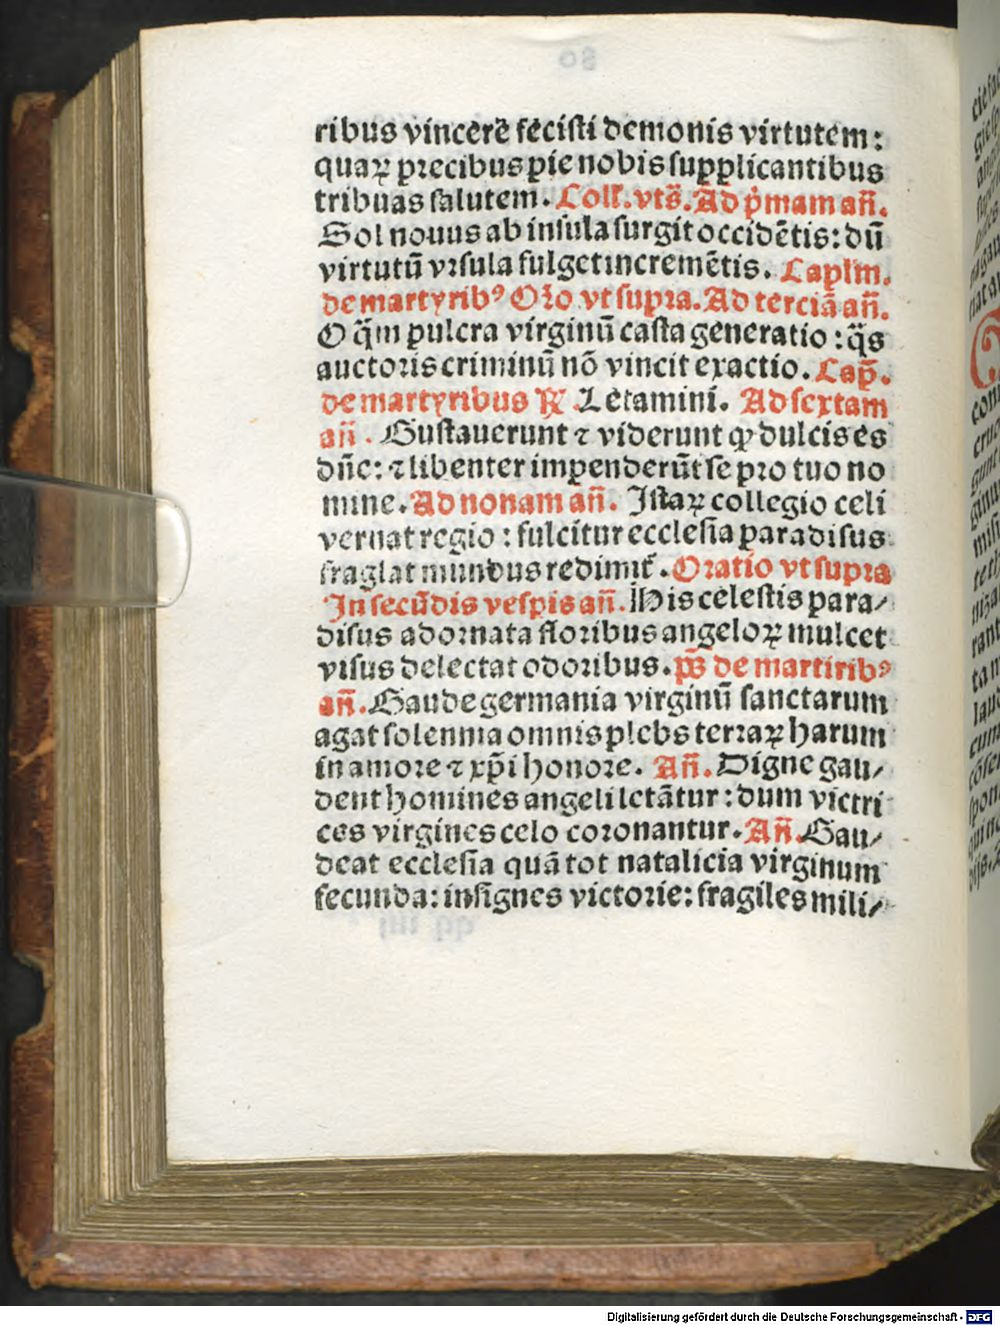 ribus vincerē fecisti demonis virtutem:
quaꝝ precibus pie nobis supplicantibus
tribuas salutem. Coll. vts̄. Ad p̄mam añ.
Sol nouus ab insula surgit occidētis: dū
virtutū vrsula fulget incremētis. Capl̄m.
de martyribꝰ Oꝛ̄o vt supra. Ad terciā añ.
O q̄m pulcra virginū casta generatio: q̄s
auctoris criminū nō vincit exactio. Cap̄.
de martyribus ℟. Letamini. Ad sextam
añ. Gustauerunt ⁊ viderunt ꝙ dulcis es
dñe: ⁊ libenter impenderūt se pro tuo no
mine. Ad nonam añ. Istaꝝ collegio celi
vernat regio: fulcitur ecclesia paradisus
fraglat mundus redimit᷑. Oratio vt supra
In secūdis vespis añ. His celestis para⸗
disus adornata floribus angeloꝝ mulcet
visus delectat odoribus. ps̄ de martiribꝰ
añ. Gaude germania virginū sanctarum
agat solennia omnis plebs terraꝝ harum
in amore ⁊ xp̄i honore. Añ. Digne gau⸗
dent homines angeli letātur: dum victri
ces virgines celo coronantur. Añ. Gau⸗
deat ecclesia quā tot natalicia virginum
fecunda: insignes victorie: fragiles mili⸗
Digitalisierung gefördert durch die Deutsche Forschungsgemeinschaft - DFG